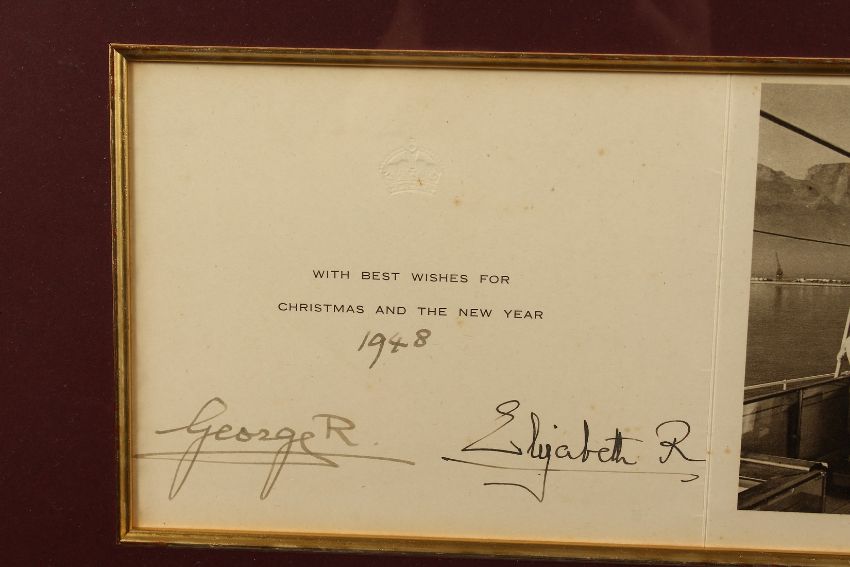 WITH BEST WISHES FOR
CHRISTMAS AND THE NEW YEAR
1948
George R.
Elizabeth R